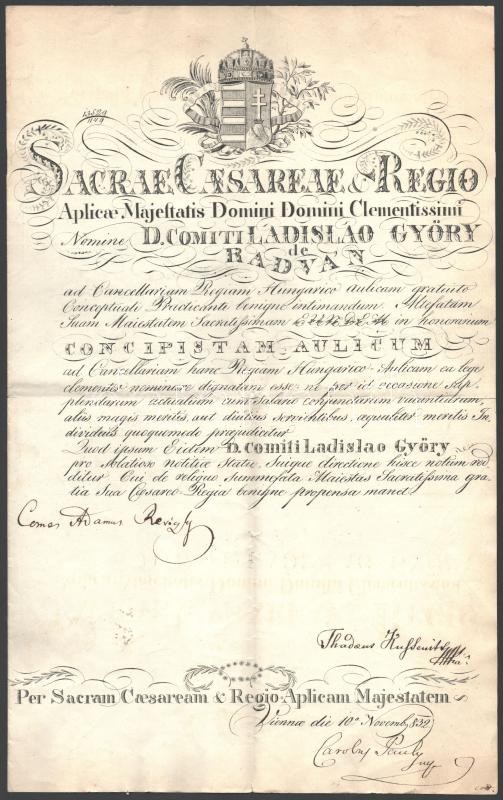 13529
SACRAE CÆSAREAE & REGIO
Aplicæ Majestatis Domini Domini Clementissimi
Nomine D. COMITI LADISLAO GYÖRY
de
RADVAN
ad Cancellariam Regiam Hungarico Aulicam gratuito
Conceptuali Practicante benigne intimandum. Altefatam
Suam Maiestatem Sacratissimam EUNDEM in honorarium
CONCIPISTAM AULICUM
ad Cancellariam hanc Regiam Hungarico-Aulicam ea lege
clementer nominare dignatam esse: ne per id occasione sup-
plendarum actualium cum salario conjunctarum vacantiarum,
aliis magis meritis, aut diutius servientibus, æqualiter meritis In-
dividuis quoquomodo præjudicetur
Quod ipsum Eidem D. Comiti Ladislao Györy
pro solatiosa notitia Statu Suique directione hisce notum red-
ditur. Cui de reliquo summefata Maiestas Sacratissima gra-
tia Sua Cæsareo-Regia benigne propensa manet.
Comes Adamus Reviczky
Thadæus
Per Sacram Cæsaream & Regio-Aplicam Majestatem
Viennæ die 10ª Novemb. 832
Carolus Pauly